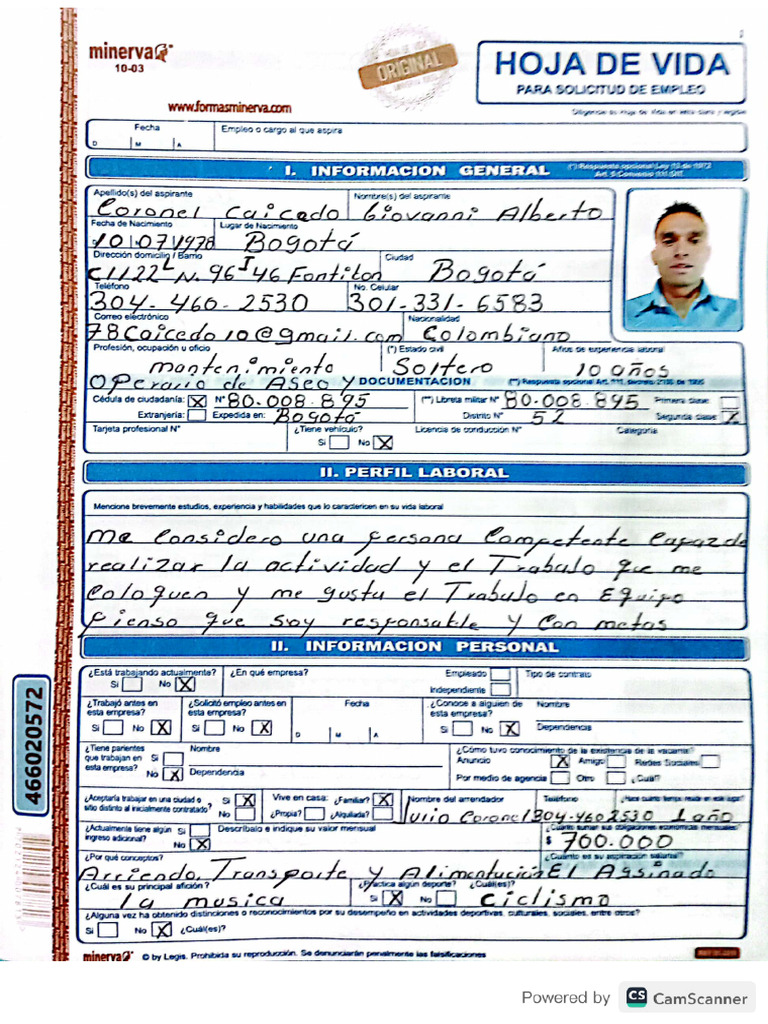 minerva
10-03
ORIGINAL
HOJA DE VIDA
PARA SOLICITUD DE EMPLEO
www.formasminerva.com
Fecha
Empleo o cargo al que aspira
D M A
I. INFORMACION GENERAL
Apellido(s) del aspirante Nombre(s) del aspirante
Coronel Caicedo Giovanni Alberto
Fecha de Nacimiento Lugar de Nacimiento
10 07 1978 Bogotá
Dirección domicilio / Barrio Ciudad
Cll 22 L N. 96 I 46 Fontibon Bogotá
Teléfono No. Celular
304-460-2530 301-331-6583
Correo electrónico Nacionalidad
78Caicedo10@gmail.com Colombiano
Profesión, ocupación u oficio (*) Estado civil Años de experiencia laboral
mantenimiento Soltero 10 años
Operario de Aseo y DOCUMENTACION
Cédula de ciudadanía: X N° 80.008.895 (**) Libreta militar N° 80.008.895 Primera clase
Extranjería: Expedida en: Bogotá Distrito N° 52 Segunda clase X
Tarjeta profesional N° ¿Tiene vehículo? Licencia de conducción N° Categoría
Si No X
II. PERFIL LABORAL
Mencione brevemente estudios, experiencia y habilidades que lo caractericen en su vida laboral
me Considero una persona Competente Capaz de
realizar la actividad y el Trabalo que me
Coloquen y me gusta el Trabulo en Equipo
pienso que soy responsable y Con metas
II. INFORMACION PERSONAL
¿Está trabajando actualmente? ¿En qué empresa? Empleado Tipo de contrato
Si No X Independiente
¿Trabajó antes en esta empresa? ¿Solicitó empleo antes en esta empresa? Fecha ¿Conoce a alguien de esta empresa? Nombre
Si No X Si No X D M A Si No X Dependencia
¿Tiene parientes que trabajan en esta empresa? Si No X Nombre
Dependencia
¿Cómo tuvo conocimiento de la existencia de la vacante?
Anuncio X Amigo Redes Sociales
Por medio de agencia Otro ¿Cuál?
¿Aceptaría trabajar en una ciudad o sitio distinto al inicialmente contratado? Si X No
Vive en casa: ¿Familiar? X ¿Propia? ¿Alquilada?
Nombre del arrendador Teléfono
Julio Coronel 304-4602530 1 año
¿Actualmente tiene algún ingreso adicional? Si No X Descríbalo e indique su valor mensual
¿Cuánto suman sus obligaciones económicas mensuales?
$ 700.000
¿Por qué conceptos? ¿Cuánto es su aspiración salarial?
Arriendo, Transporte y Alimentución El Assinado
¿Cuál es su principal afición? ¿Practica algún deporte? ¿Cuál(es)?
la musica Si X No Ciclismo
¿Alguna vez ha obtenido distinciones o reconocimientos por su desempeño en actividades deportivas, culturales, sociales, entre otros?
Si No X ¿Cuál(es)?
minerva © by Legis. Prohibida su reproducción. Se denunciarán penalmente las falsificaciones
466020572
Powered by CS CamScanner